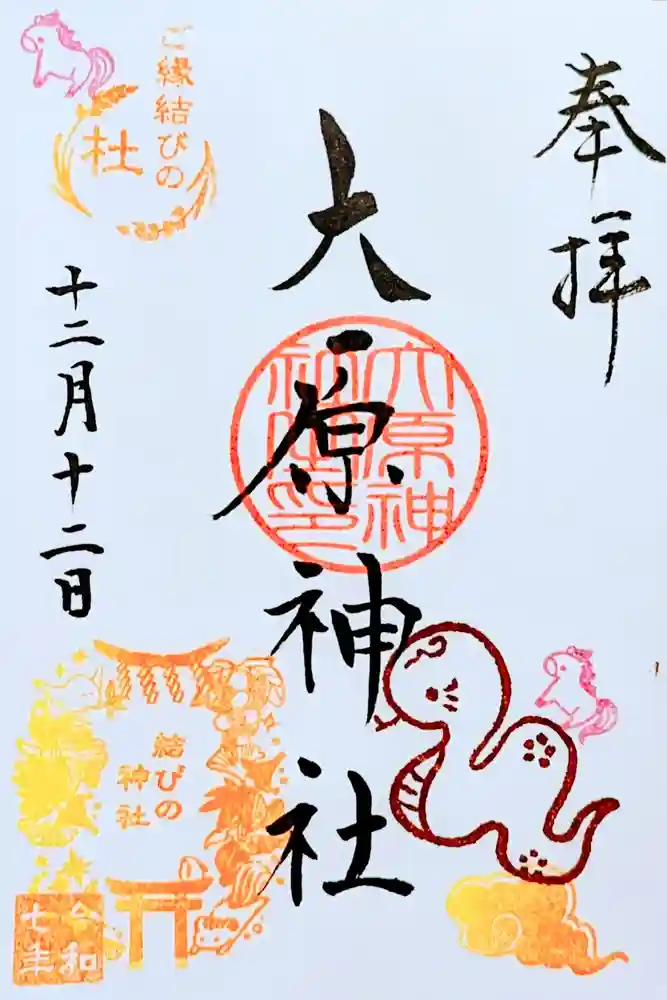 奉拝
大原神社
大原神社
ご縁結びの
杜
十二月十二日
結びの
神社
令和
七年